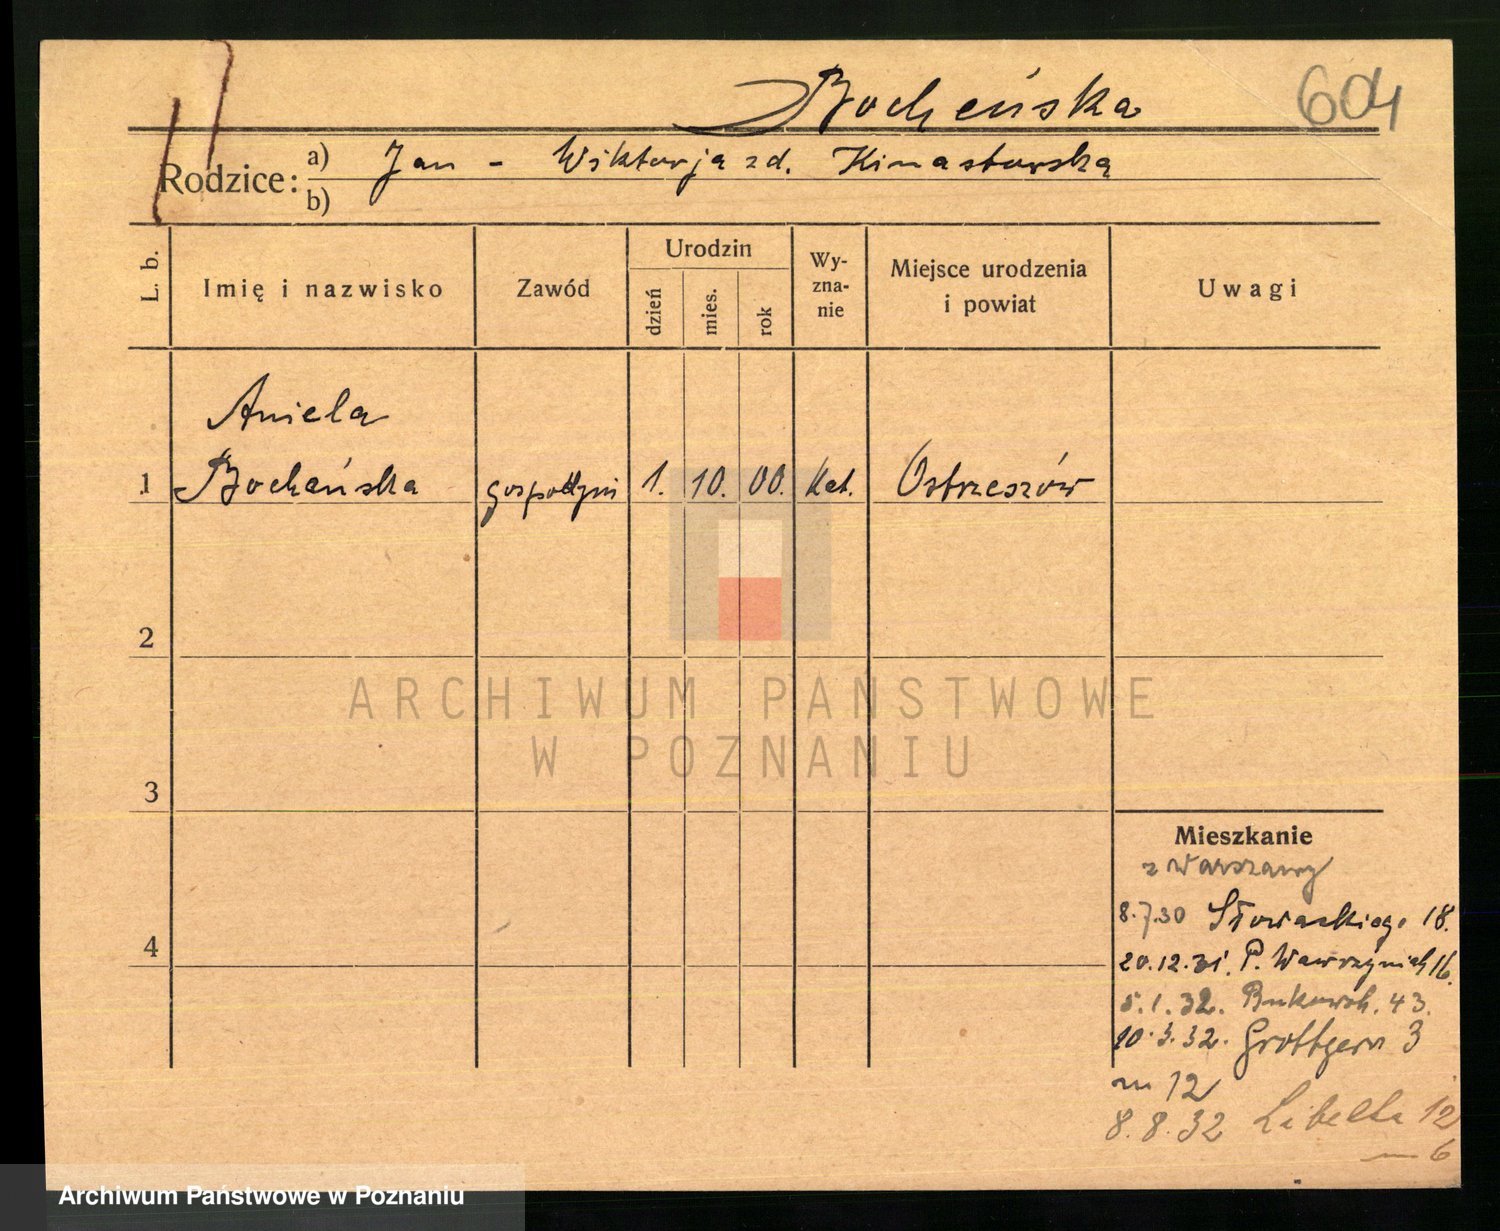 Bocheńska 604
Rodzice: a) Jan - Wiktorja zd. Kinastowska
b)
L. b. Imię i nazwisko Zawód Urodzin dzień mies. rok Wy-zna-nie Miejsce urodzenia i powiat Uwagi
Aniela
1 Bocheńska gospodyni 1. 10. 00. Kat. Ostrzeszów
2
ARCHIWUM PAŃSTWOWE
W POZNANIU
3
Mieszkanie
z Warszawy
8.7.30 Słowackiego 18.
4
20.12.31. P. Wawrzyniak 16.
5.1.32. Bukowsk. 43.
10.3.32. Grottgera 3
m 12
8.8.32 Libelta 12
m 6
Archiwum Państwowe w Poznaniu